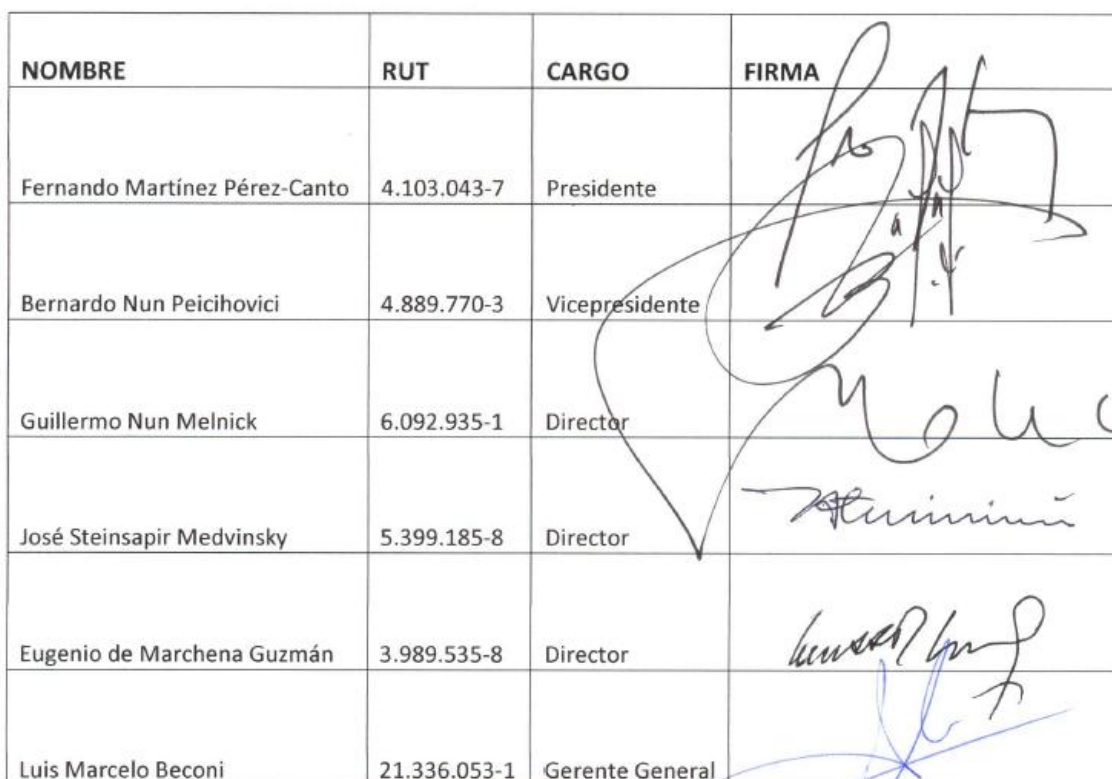 NOMBRE RUT CARGO FIRMA
Fernando Martínez Pérez-Canto 4.103.043-7 Presidente
Bernardo Nun Peicihovici 4.889.770-3 Vicepresidente
Guillermo Nun Melnick 6.092.935-1 Director
José Steinsapir Medvinsky 5.399.185-8 Director
Eugenio de Marchena Guzmán 3.989.535-8 Director
Luis Marcelo Beconi 21.336.053-1 Gerente General